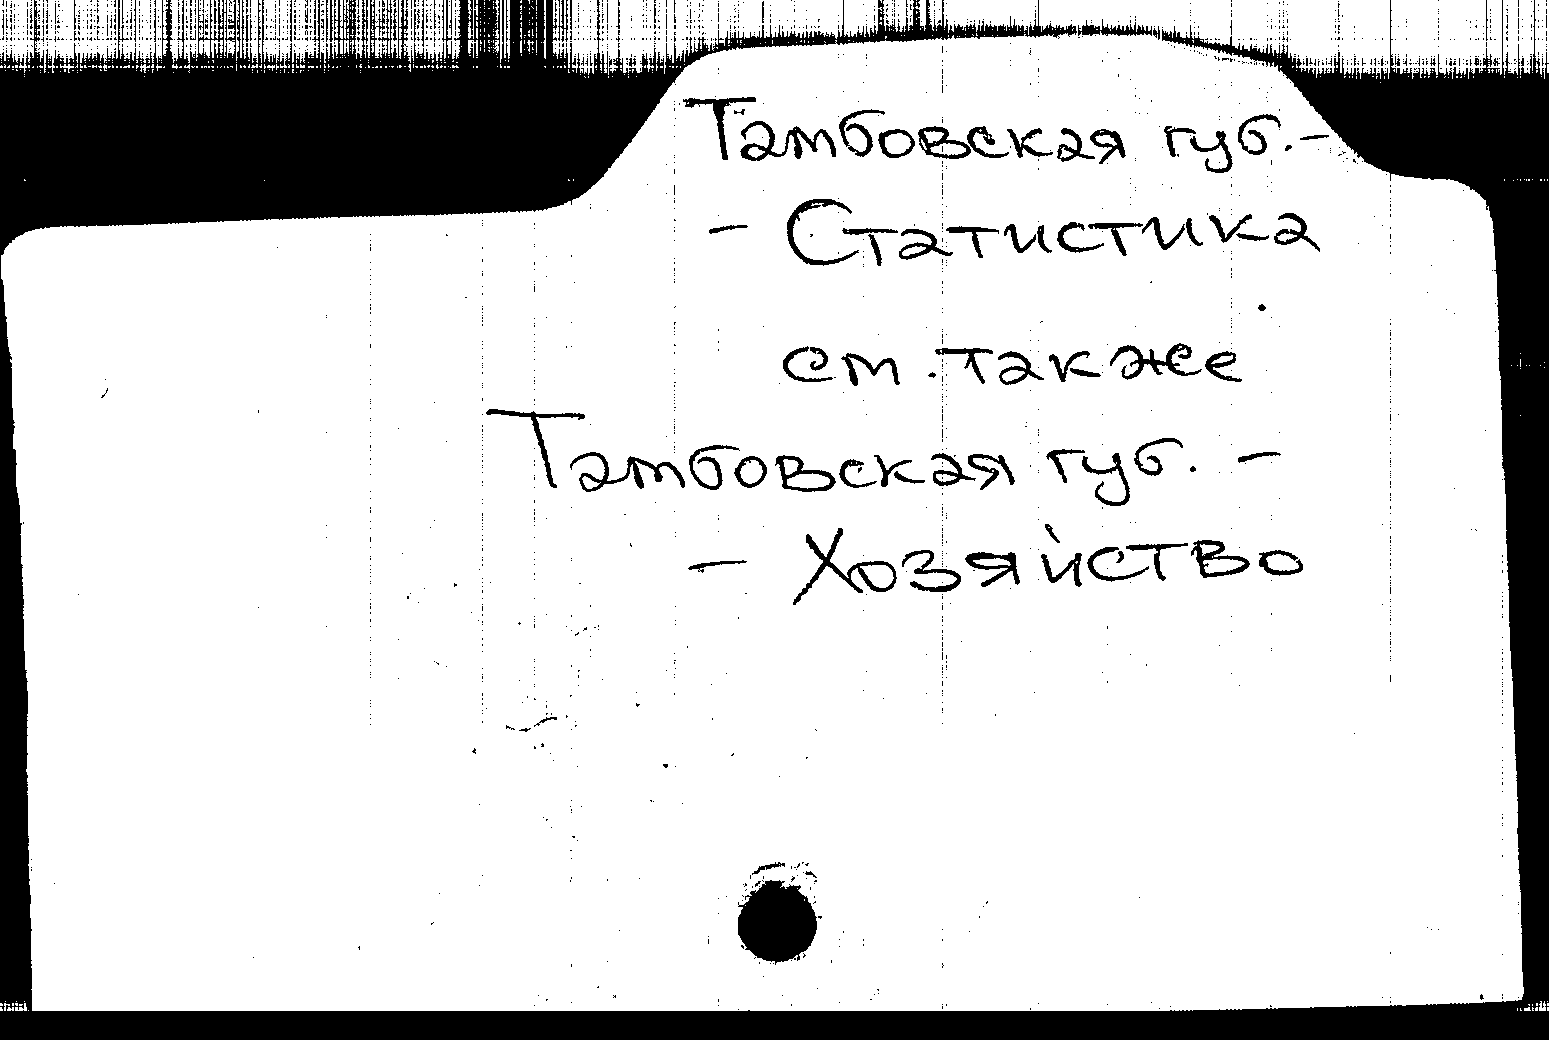 Тамбовская губ. -
- Статистика
см. также
Тамбовская губ. -
- Хозяйство